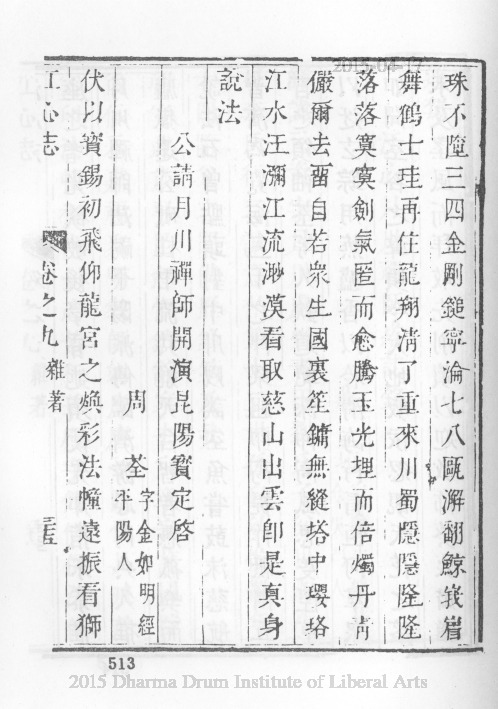 珠不墮三四金剛鎚寧淪七八甌澥翻鯨峩嶒
舞鶴士珪再住龍翔淸了重來川蜀隱隱隆隆
落落寞寞劍氣匿而愈騰玉光埋而倍燭丹靑
儼爾去畱自若衆生國裏笙鏞無縫塔中瓔珞
江水汪瀰江流渺漠看取慈山出雲卽是真身
說法
公請月川禪師開演昆陽寶定啓
周荃字金如明經平陽人
伏以寶錫初飛仰龍宮之煥彩法幢遠振看獅
江心志 卷之九雜著
513
2015 Dharma Drum Institute of Liberal Arts